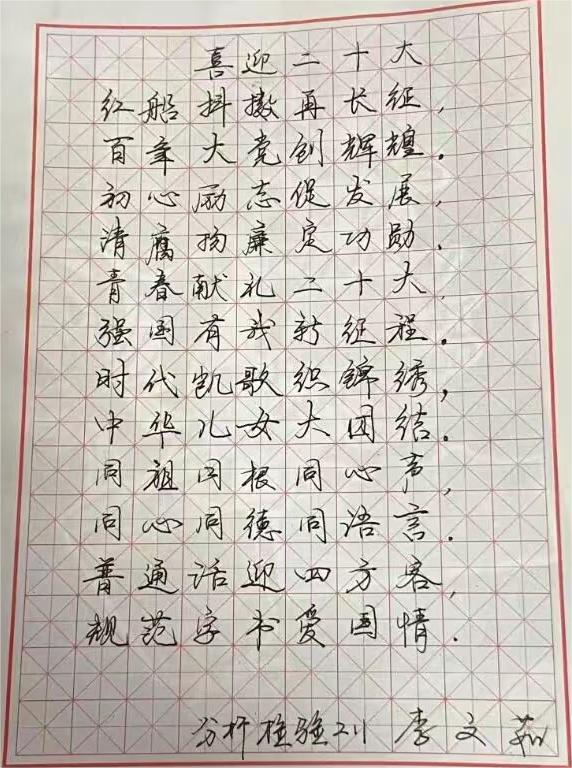 喜迎二十大
红船抖擞再长征，
百年大党创辉煌。
初心励志促发展，
清腐扬廉定功勋。
青春献礼二十大，
强国有我新征程。
时代凯歌织锦绣，
中华儿女大团结。
同祖同根同心声，
同心同德同语言。
普通话迎四方客，
规范字书爱国情。
分析检验211 李文茹